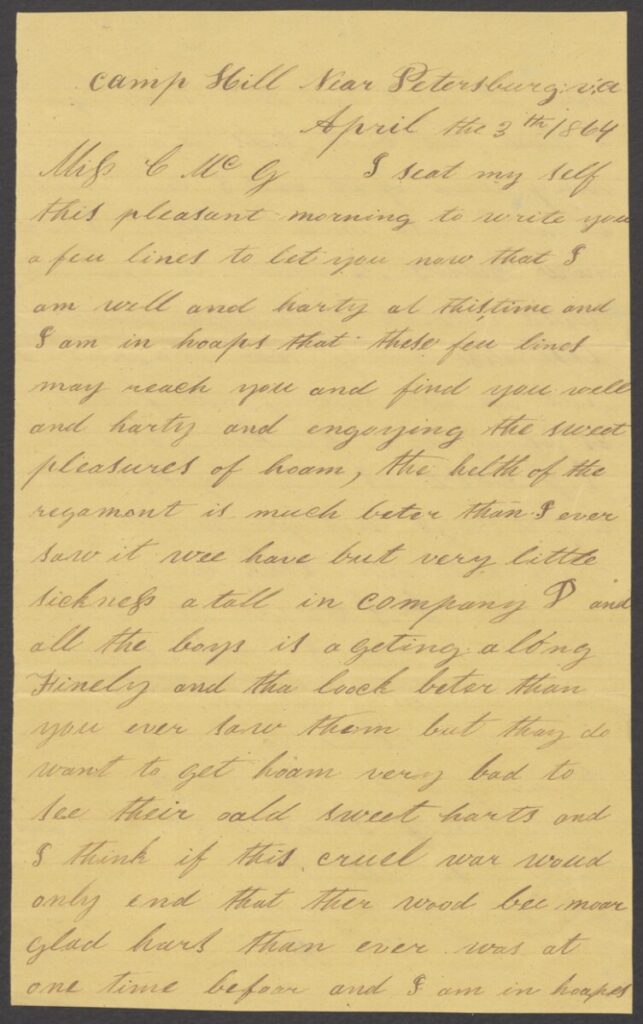 Camp Hill Near Petersburg va
April the 3th 1864
Miss C Mc G I seat my self
this pleasant morning to write you
a feu lines to let you now that I
am well and harty at this time and
I am in hoaps that these feu lines
may reach you and find you well
and harty and engoying the sweet
pleasures of hoam, the helth of the
regament is much beter than I ever
saw it wee have but very little
sickness a tall in company D and
all the boys is a geting along
Finely and tha loock beter than
you ever saw them but thay do
want to get hoam very bad to
see their oald sweet harts and
I think if this cruel war woud
only end that ther wood bee moar
glad harts than ever was at
one time befoar and I am in hoapes